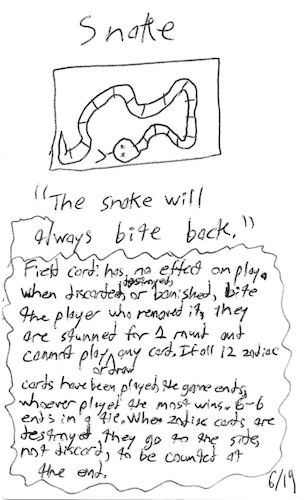 Snake
"The snake will
always bite back."
Field card: has no effect on play.
When discarded, destroyed, or banished, bite
the player who removed it, they
are stunned for 1 round and
cannot play or draw any card. If all 12 zodiac
cards have been played, the game ends,
whoever played the most wins. 6-6
ends in a tie. When zodiac cards are
destroyed they go to the side,
not discard, to be counted at
the end.
6/19